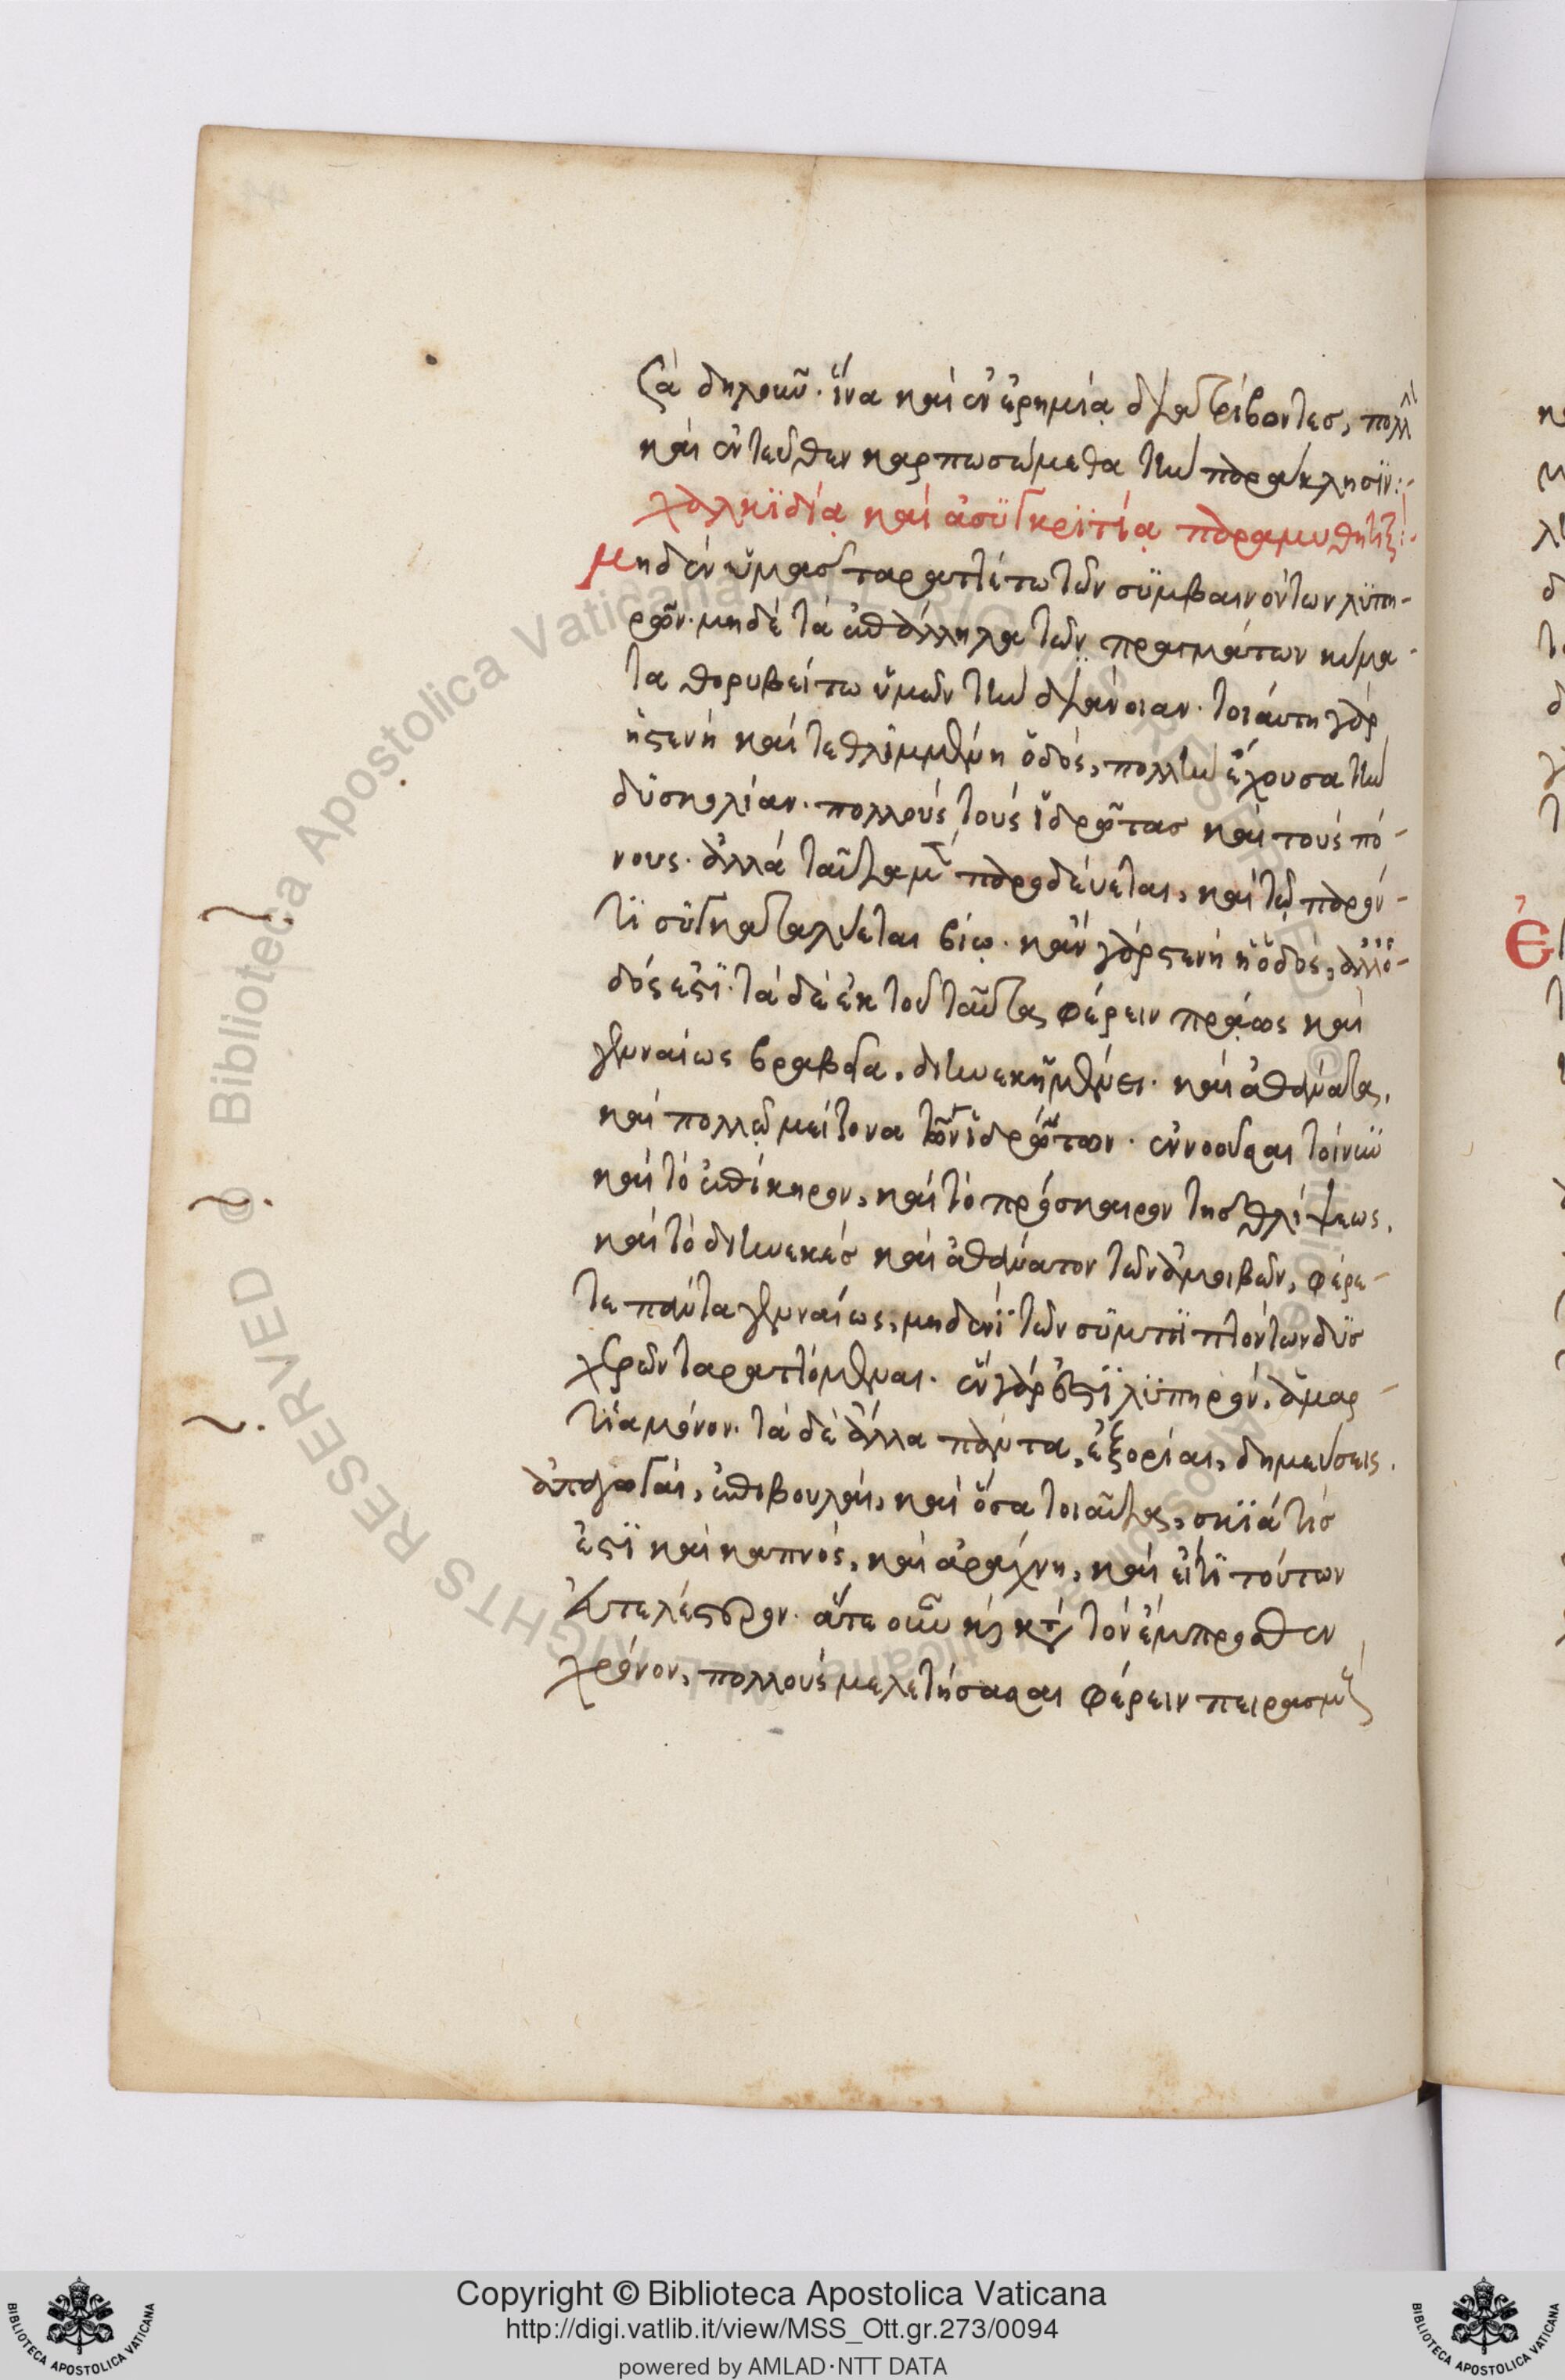 ζὰ δηλοῦν. ἵνα καὶ ἐν ἐρημίᾳ διατρίβοντες, πολλὴν
καὶ ἐντεῦθεν καρπωσώμεθα τὴν παράκλησϊν:-
χαλκϊδίᾳ καὶ ἀσϋγκρϊτίᾳ παραμυθητικὴ:-
μηδὲν ὑμᾶς ταραττέτω τῶν σϋμβαινόντων λϋπη-
ρῶν. μηδὲ τὰ ἐπάλληλα τῶν πραγμάτων κύμα-
τα θορυβείτω ὑμῶν τὴν διάνοιαν. τοιάυτη γὰρ
ἡ στενὴ καὶ τεθλϊμμένη ὁδός, πολλὴν ἔχουσα τὴν
δϋσκολίαν. πολλοὺς τοὺς ἱδρῶτας καὶ τοὺς πό-
νους. ἀλλὰ ταῦτα μὲν παροδεύεται, καὶ τῷ παρόν-
τϊ σϋγκαταλύεται βίῳ. κἂν γὰρ στενὴ ἡ ὁδός, ἀλλ' ὁ-
δός ἐστϊ. τὰ δὲ ἐκ τοῦ ταῦτα φέρειν πράως καὶ
γενναίως βραβεῖα, διηνεκῆ μένει. καὶ ἀθάνατα,
καὶ πολλῷ μείζονα τῶν ἱδρώτων. ἐννοοῦσαι τοίνυν
καὶ τὸ ἐπίκηρον, καὶ τὸ πρόσκαιρον τῆς θλίψεως,
καὶ τὸ διηνεκὲς καὶ ἀθάνατον τῶν ἀμοιβῶν, φέρε-
τε πάντα γενναίως, μηδενὶ τῶν σϋμπϊπτόντων δϋσ
χερῶν ταραττόμεναι. ἓν γάρ ἐστϊ λϋπηρόν, ἁμαρ-
τΐα μόνον. τὰ δὲ ἄλλα πάντα, ἐξορίαι, δημεύσεις,
ἀπαγωγαὶ, ἐπιβουλαὶ, καὶ ὅσα τοιαῦτα, σκϊά τίς
ἐστϊ καὶ καπνός, καὶ ἀράχνη, καὶ εἴ τϊ τούτων
εὐτελέστερον. ἅτε οὖν καὶ κατὰ τὸν ἔμπροσθεν
χρόνον, πολλοὺς μελετήσασαι φέρειν πειρασμοὺς